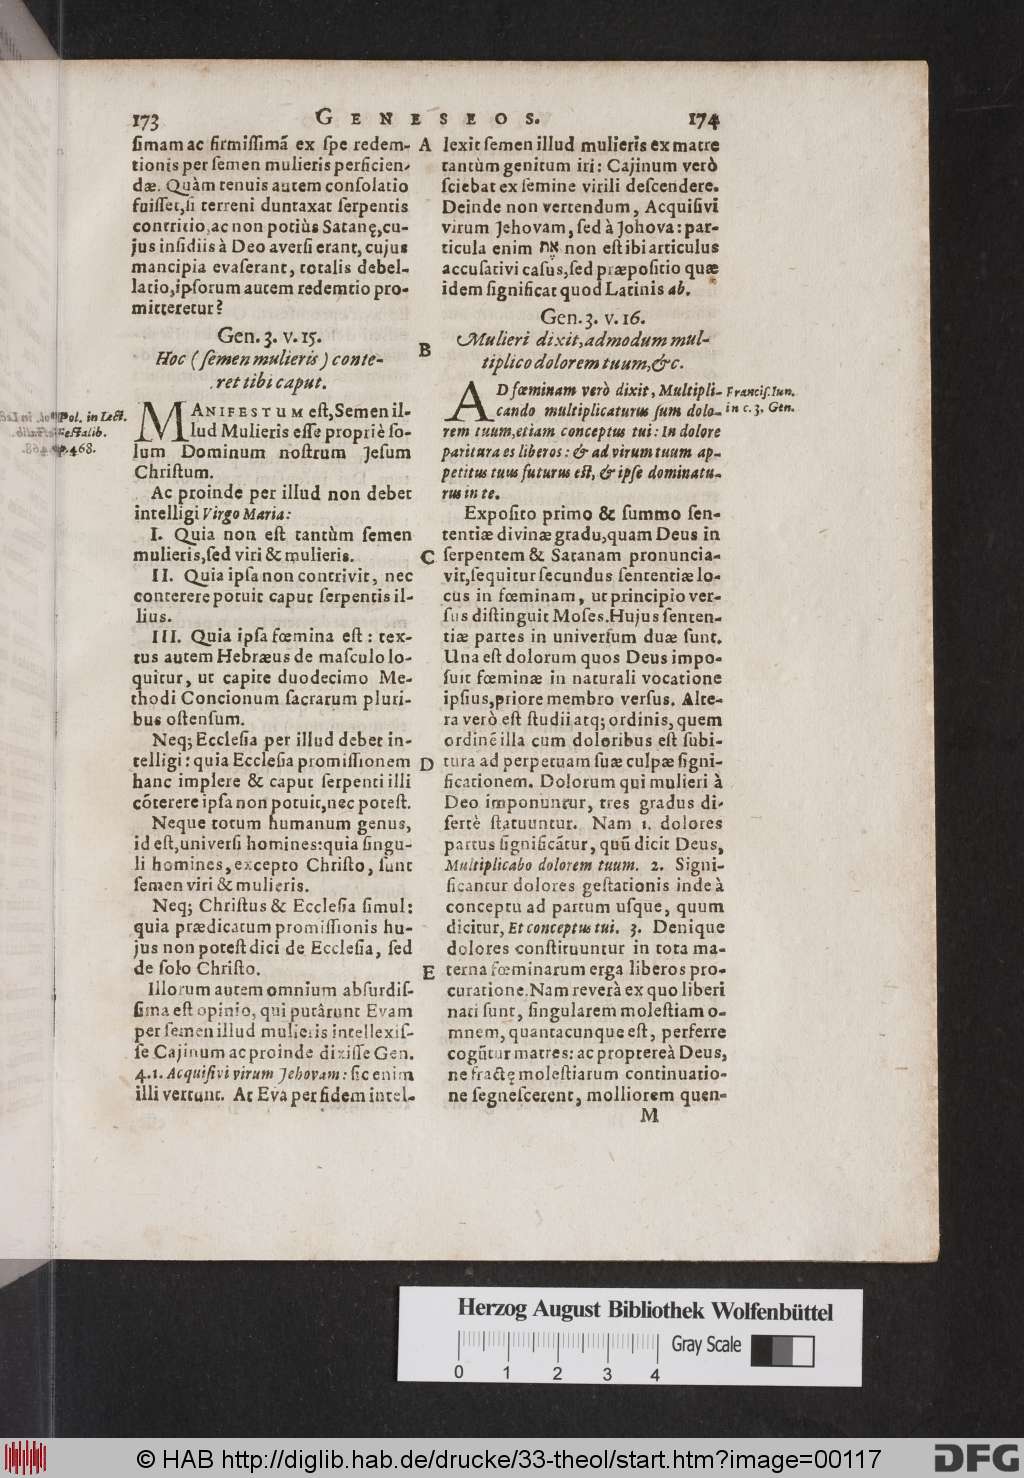 173
GENESEOS.
174
simam ac firmissimã ex spe redem-
tionis per semen mulieris perficien-
dæ. Quàm tenuis autem consolatio
fuisset, si terreni duntaxat serpentis
contritio, ac non potiùs Satanę, cu-
jus insidiis à Deo aversi erant, cujus
mancipia evaserant, totalis debel-
latio, ipsorum autem redemtio pro-
mitteretur?
Gen. 3. v. 15.
Hoc (semen mulieris) conte-
ret tibi caput.
Pol. in Lect.
festalib.
p. 468.
MANIFESTUM est, Semen il-
lud Mulieris esse propriè so-
lum Dominum nostrum Jesum
Christum.
Ac proinde per illud non debet
intelligi Virgo Maria:
I. Quia non est tantùm semen
mulieris, sed viri & mulieris.
II. Quia ipsa non contrivit, nec
conterere potuit caput serpentis il-
lius.
III. Quia ipsa fœmina est: tex-
tus autem Hebræus de masculo lo-
quitur, ut capite duodecimo Me-
thodi Concionum sacrarum pluri-
bus ostensum.
Neq; Ecclesia per illud debet in-
telligi: quia Ecclesia promissionem
hanc implere & caput serpenti illi
cõterere ipsa non potuit, nec potest.
Neque totum humanum genus,
id est, universi homines: quia singu-
li homines, excepto Christo, sunt
semen viri & mulieris.
Neq; Christus & Ecclesia simul:
quia prædicatum promissionis hu-
jus non potest dici de Ecclesia, sed
de solo Christo.
Illorum autem omnium absurdis-
sima est opinio, qui putârunt Evam
per semen illud mulieris intellexis-
se Cajinum ac proinde dixisse Gen.
4.1. Acquisivi virum Jehovam: sic enim
illi vertunt. At Eva per fidem intel-
A
B
C
D
E
lexit semen illud mulieris ex matre
tantùm genitum iri: Cajinum verò
sciebat ex semine virili descendere.
Deinde non vertendum, Acquisivi
virum Jehovam, sed à Johova: par-
ticula enim את non est ibi articulus
accusativi casus, sed præpositio quæ
idem significat quod Latinis ab.
Gen. 3. v. 16.
Mulieri dixit, admodum mul-
tiplico dolorem tuum, &c.
AD fœminam verò dixit, Multipli-
cando multiplicaturus sum dolo-
rem tuum, etiam conceptus tui: In dolore
paritura es liberos: & ad virum tuum ap-
petitus tuus futurus est, & ipse dominatu-
rus in te.
Francisc. Iun.
in c. 3. Gen.
Exposito primo & summo sen-
tentiæ divinæ gradu, quam Deus in
serpentem & Satanam pronuncia-
vit, sequitur secundus sententiæ lo-
cus in fœminam, ut principio ver-
sus distinguit Moses. Hujus senten-
tiæ partes in universum duæ sunt.
Una est dolorum quos Deus impo-
suit fœminæ in naturali vocatione
ipsius, priore membro versus. Alte-
ra verò est studii atq; ordinis, quem
ordinẽ illa cum doloribus est subi-
tura ad perpetuam suæ culpæ signi-
ficationem. Dolorum qui mulieri à
Deo imponuntur, tres gradus di-
sertè statuuntur. Nam 1. dolores
partus significãtur, quũ dicit Deus,
Multiplicabo dolorem tuum. 2. Signi-
ficantur dolores gestationis inde à
conceptu ad partum usque, quum
dicitur, Et conceptus tui. 3. Denique
dolores constituuntur in tota ma-
terna fœminarum erga liberos pro-
curatione. Nam reverà ex quo liberi
nati sunt, singularem molestiam o-
mnem, quantacunque est, perferre
cogũtur matres: ac proptereà Deus,
ne fractę molestiarum continuatio-
ne segnescerent, molliorem quen-
M
Herzog August Bibliothek Wolfenbüttel
Gray Scale
0 1 2 3 4
© HAB http://diglib.hab.de/drucke/33-theol/start.htm?image=00117
DFG